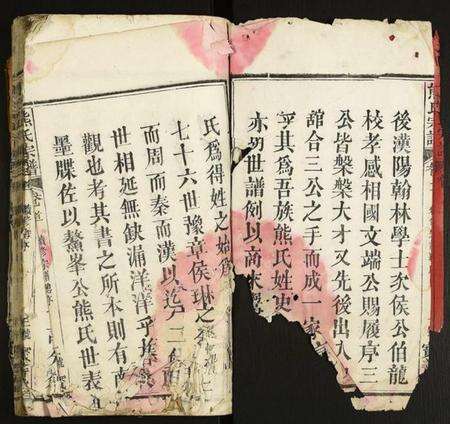 熊氏宗譜
後漢陽翰林學士矣侯公伯龍
校孝感相國文端公賜履序三
公皆槃槃大才又先後出入
館合三公之手而成一家
乎其為吾族熊氏姓史
亦叨世譜例以商來
氏為得姓之始為
七十六世豫章侯琳之
而周而秦而漢以迄
世相延無缺漏洋洋乎
觀也考其書之所本則有
墨牒佐以鰲峯公熊氏世表
熊氏宗譜
卷首